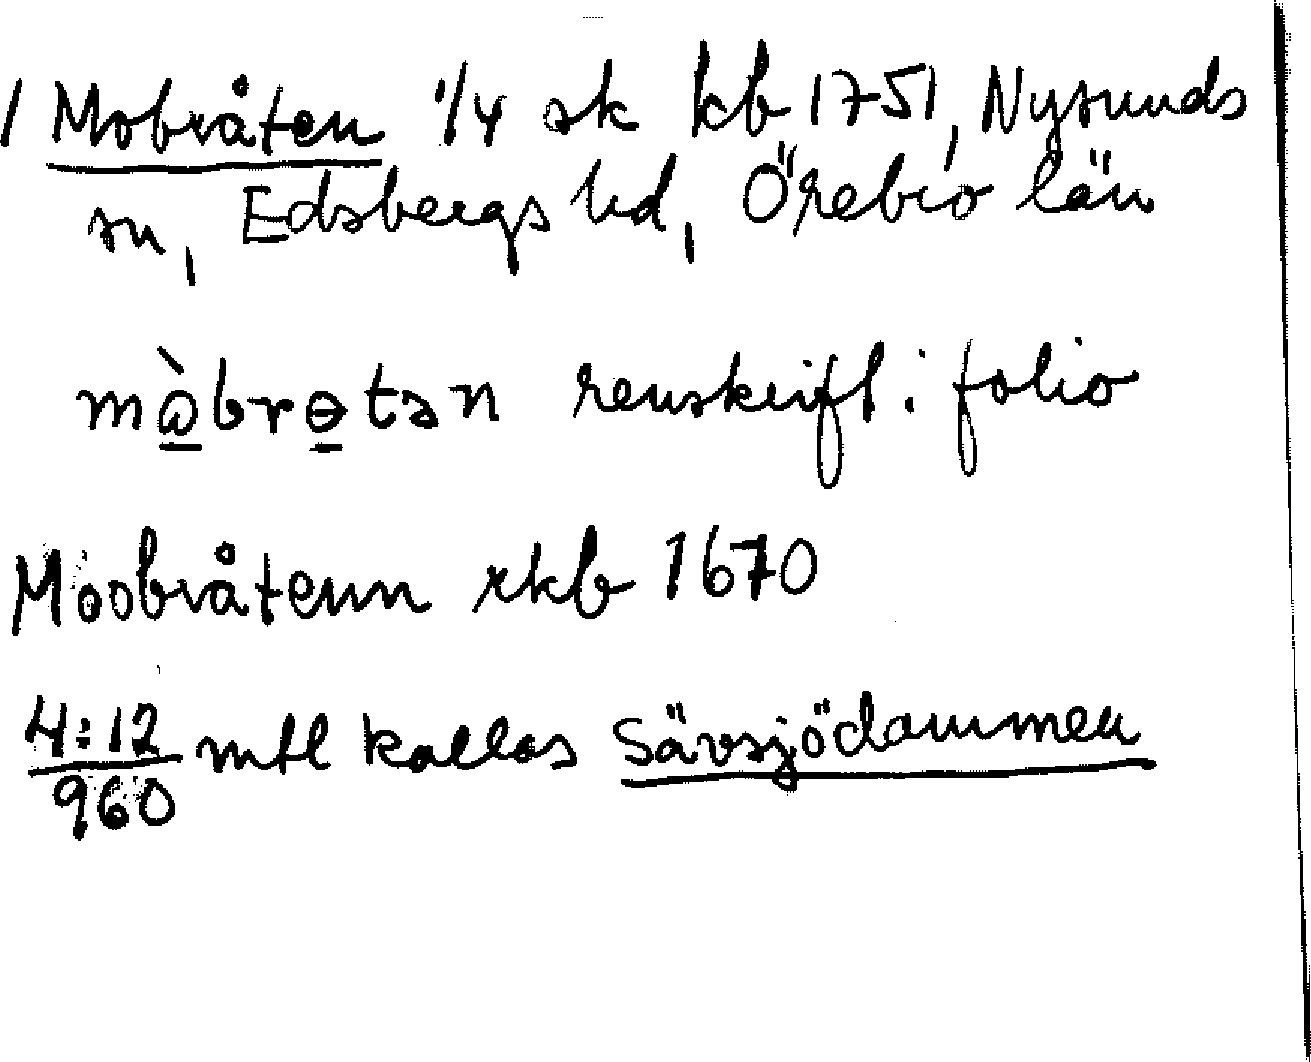 / Mobråten 1/4 sk kb 1751, Nysunds
sn, Edsbergs hd, Örebro län
mὼbrɵtən renskrift i folio
Moobråtenn rkb 1670
4:12/960 mtl kallas Sävsjödammen